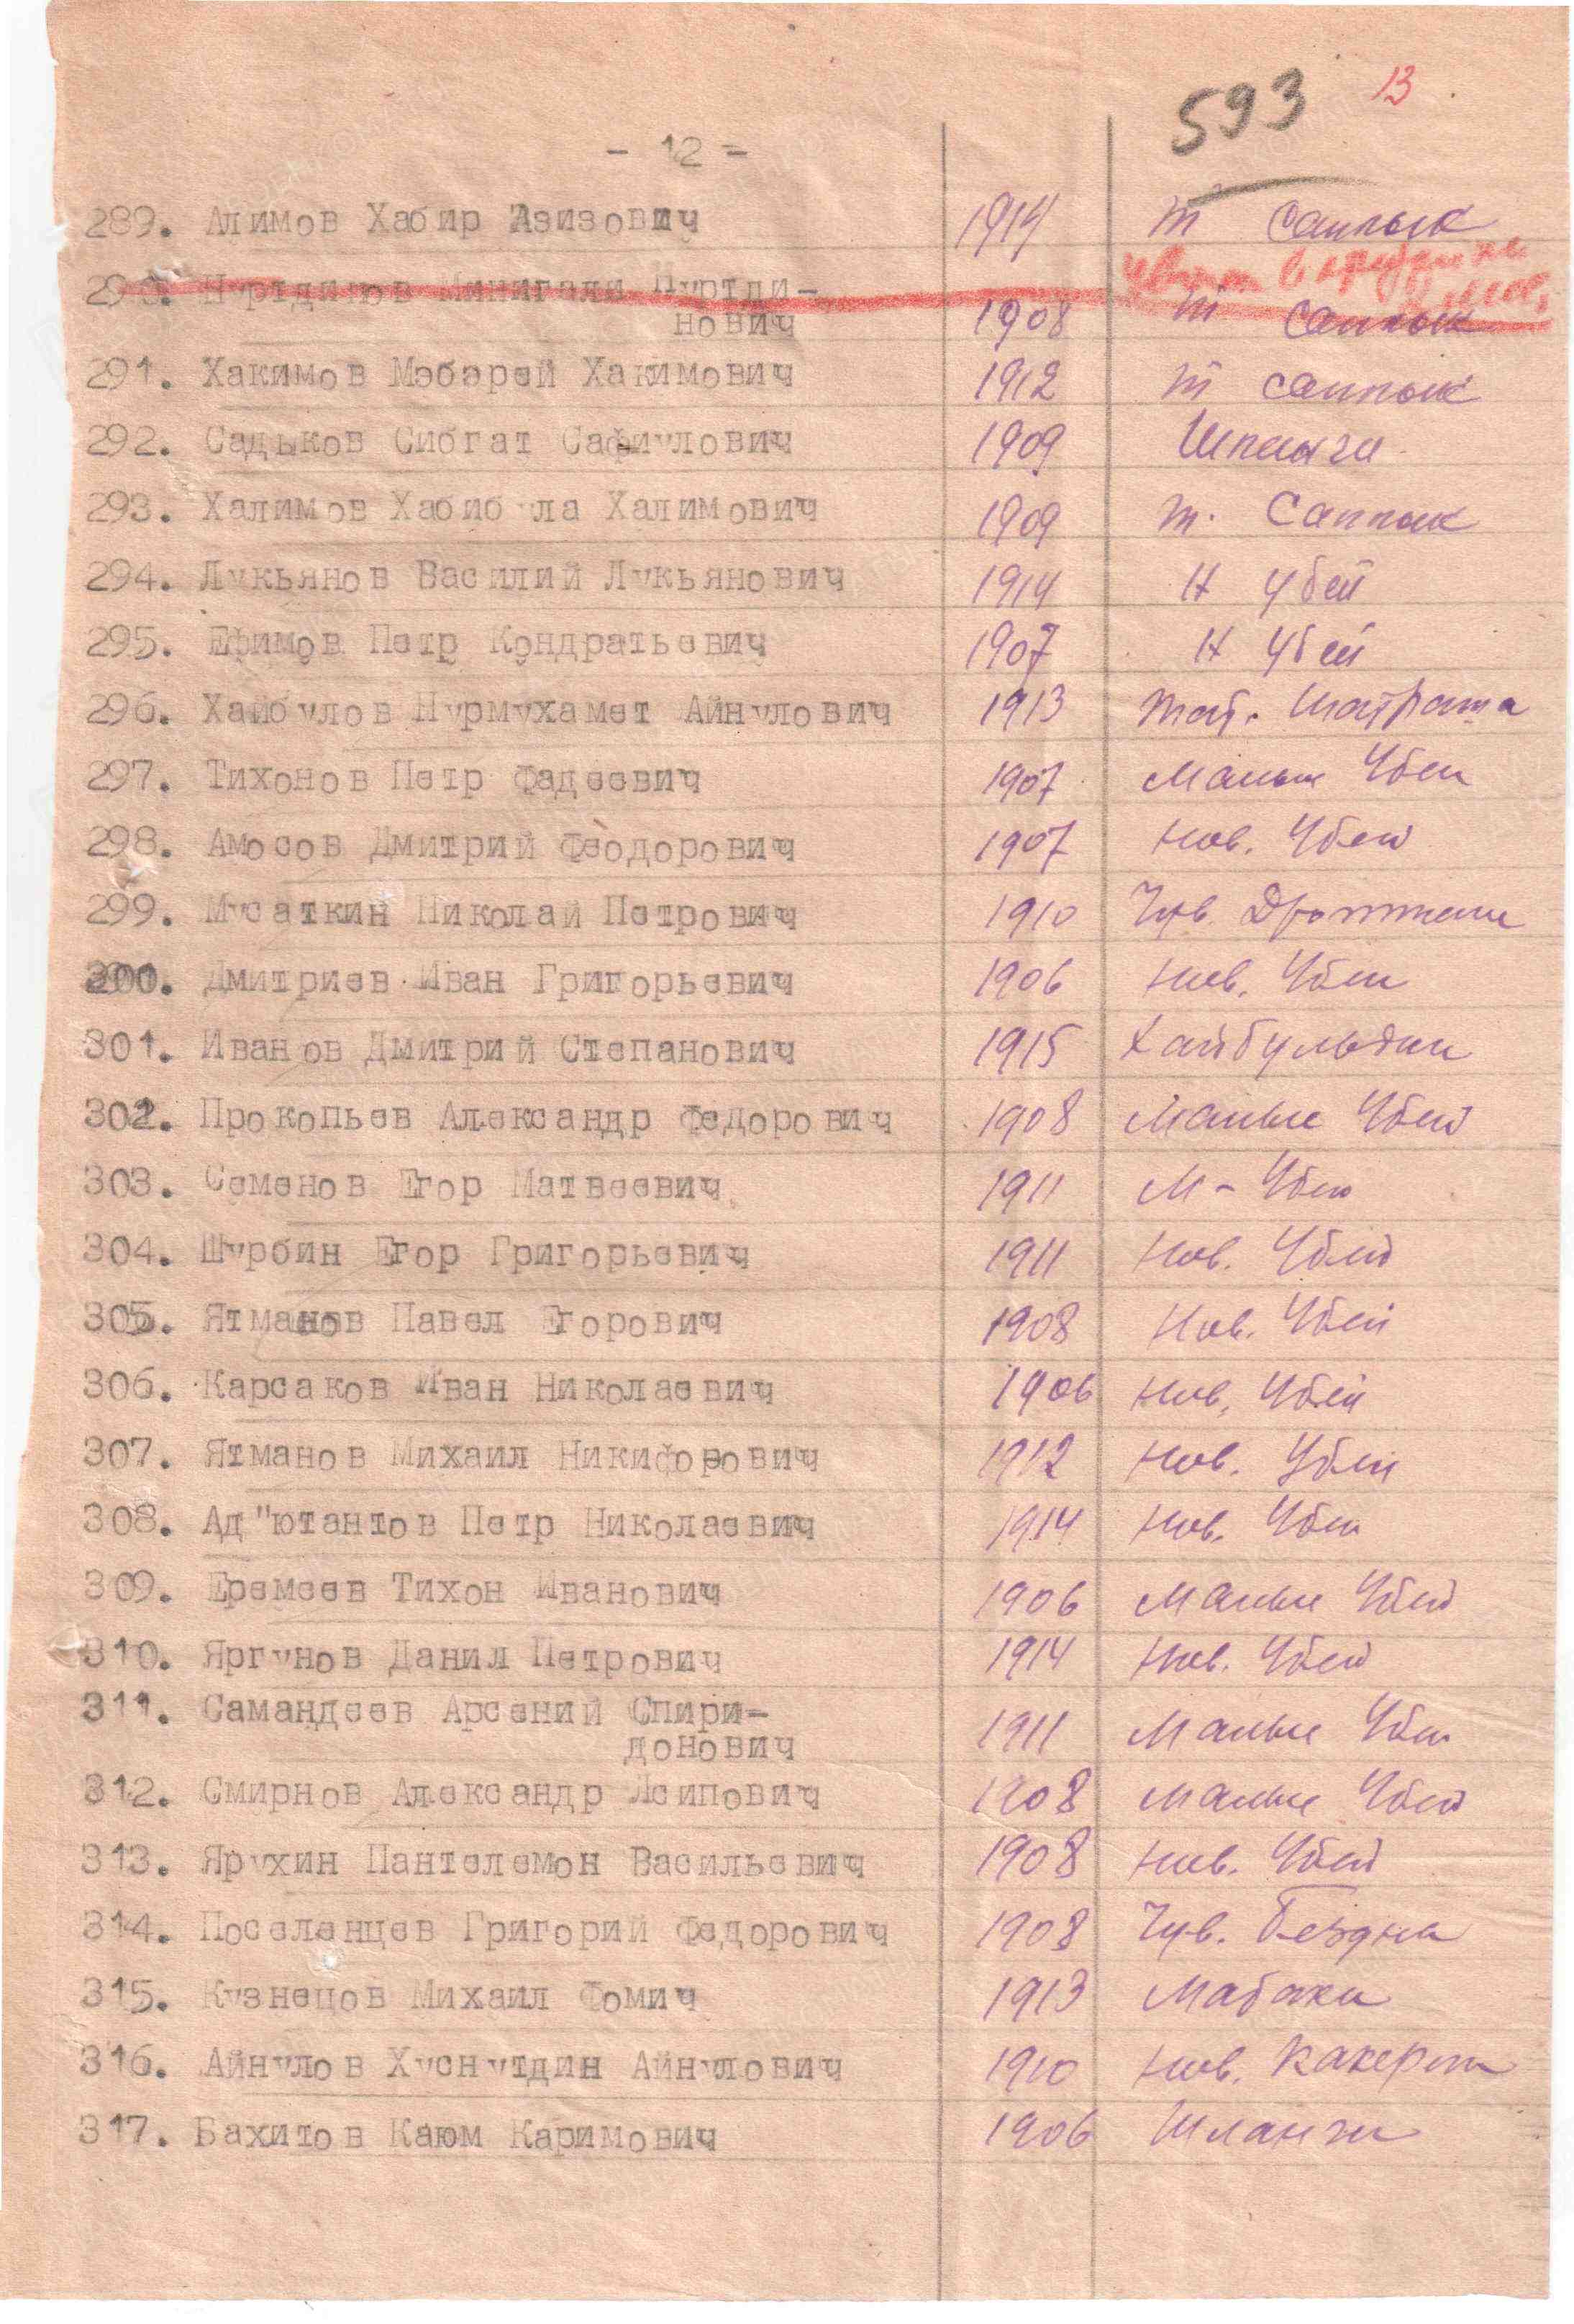 593 13
- 12 -
289. Алимов Хабир Азизович 1914 т Саплык
290. Нуртдинов Минигали Нуртди-
нович 1908 т Саплык
291. Хакимов Мэбэрей Хакимович 1912 т Саплык
292. Садыков Сибгат Сафиулович 1909
293. Халимов Хабибула Халимович 1909 т. Саплык
294. Лукьянов Василий Лукьянович 1914 Н Убей
295. Ефимов Петр Кондратьевич 1907 Н Убей
296. Хайбулов Нурмухамет Айнулович 1913 Тат. Шатрама
297. Тихонов Петр Фадеевич 1907 Малые Убеи
298. Амосов Дмитрий Феодорович 1907 Нов. Убей
299. Мусаткин Николай Петрович 1910 Чув. Дрожжани
300. Дмитриев Иван Григорьевич 1906 Нов. Убеи
301. Иванов Дмитрий Степанович 1915 Хайбульдин
302. Прокопьев Александр Федорович 1908 Малые Убей
303. Семенов Егор Матвеевич 1911 М - Убей
304. Шурбин Егор Григорьевич 1911 Нов. Убей
305. Ятманов Павел Егорович 1908 Нов. Убей
306. Карсаков Иван Николаевич 1906 Нов. Убей
307. Ятманов Михаил Никифорович 1912 Нов. Убеи
308. Ад"ютантов Петр Николаевич 1914 Нов. Убеи
309. Еремеев Тихон Иванович 1906 Малые Убей
310. Яргунов Данил Петрович 1914 Нов. Убей
311. Самандеев Арсений Спири-
донович 1911 Малые Убеи
312. Смирнов Александр Лсипович 1908 Малые Убей
313. Ярухин Пантелемон Васильевич 1908 Нов. Убей
314. Поселенцев Григорий Федорович 1908 Чув. Бездна
315. Кузнецов Михаил Фомич 1913 Мабаки
316. Айнулов Хуснутдин Айнулович 1910 Нов. Какерли
317. Бахитов Каюм Каримович 1906 Шланги